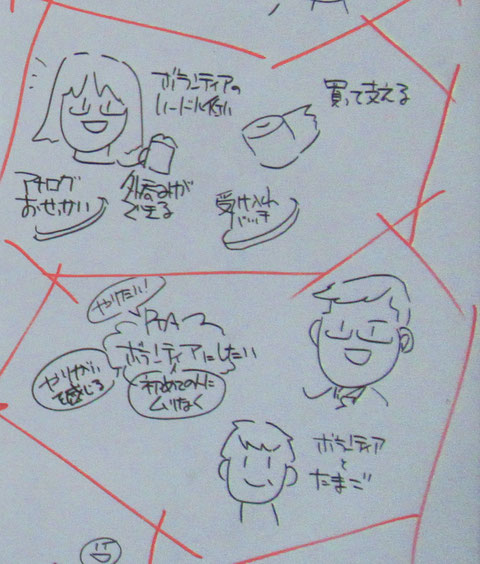 ボランティアの
買って支える
アナログ
おせっかい
外飲みが
できる
受け入れ
バッヂ
やりたい!
PTA
ボランティアにしたい
やりがい
を感じる
初めての人に
ムリなく
ボランティア
と
たまご